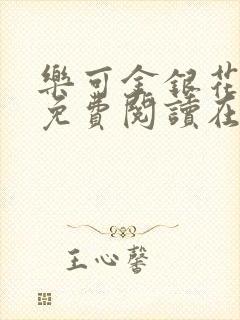 樂可金銀花
免費閱讀在
王心馨